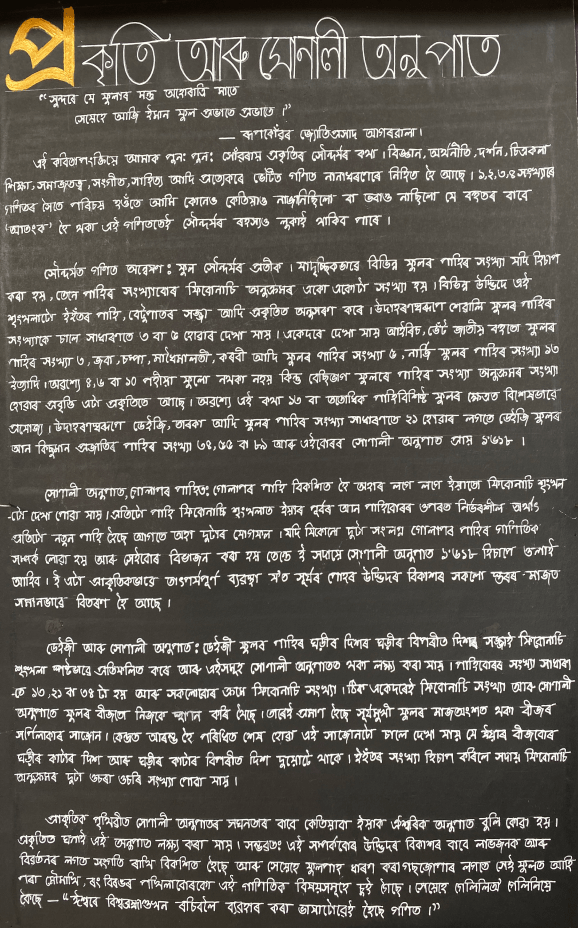 প্ৰকৃতি আৰু সোনালী অনুপাত
"সুন্দৰে যে ফুলাৰ মন্ত্ৰ অহোৰাত্ৰি মাতে
সেয়েহে আজি ইমান ফুল প্ৰভাতে প্ৰভাতে।"
— ৰূপকোঁৱৰ জ্যোতিপ্ৰসাদ আগৰৱালা।
এই কবিতাপংক্তিয়ে আমাক পুনঃ পুনঃ সোঁৱৰায় প্ৰকৃতিৰ সৌন্দৰ্যৰ কথা। বিজ্ঞান, অৰ্থনীতি, দৰ্শন, চিত্ৰকলা
শিক্ষা, সমাজতত্ত্ব, সংগীত, সাহিত্য আদি প্ৰত্যেকৰে ভেটিত গণিত নানাধৰণেৰে নিহিত হৈ আছে। ১,২,৩,৪ সংখ্যাৰে
গণিতৰ সৈতে পৰিচয় হওঁতে আমি কোনেও কেতিয়াও নাজানিছিলো বা ভবাও নাছিলো যে বহুতৰ বাবে
'আতংক' হৈ থকা এই গণিততেই সৌন্দৰ্যৰ ৰহস্যও লুকাই থাকিব পাৰে।
সৌন্দৰ্যত গণিত অন্বেষণ: ফুল সৌন্দৰ্যৰ প্ৰতীক। যাদৃচ্ছিকভাৱে বিভিন্ন ফুলৰ পাহিৰ সংখ্যা যদি হিচাপ
কৰা হয়, তেনে পাহিৰ সংখ্যাবোৰ ফিবোনাচি অনুক্ৰমৰ একো একোটা সংখ্যা হয়। বিভিন্ন উদ্ভিদে এই
শৃংখলাটো ইহঁতৰ পাহি, বেটুপাতৰ সজ্জা আদি প্ৰকৃতিত অনুসৰণ কৰে। উদাহৰণস্বৰূপে শেৱালি ফুলৰ পাহিৰ
সংখ্যাকে চালে সাধাৰণতে ৩ বা ৫ হোৱাৰ দেখা যায়। একেদৰে দেখা যায় আইৰিচ, ভেঁট জাতীয় বহুতো ফুলৰ
পাহিৰ সংখ্যা ৩, জবা, চম্পা, মাধৈমালতী, কৰবী আদি ফুলৰ পাহিৰ সংখ্যা ৫, নাৰ্জি ফুলৰ পাহিৰ সংখ্যা ১৩
ইত্যাদি। অৱশ্যে ৪,৬ বা ১০ পহীয়া ফুলো নথকা নহয় কিন্তু বেছিভাগ ফুলৰে পাহিৰ সংখ্যা অনুক্ৰমৰ সংখ্যা
হোৱাৰ প্ৰবৃত্তি এটা প্ৰকৃতিতে আছে। অৱশ্যে এই কথা ১৩ বা ততোধিক পাহিবিশিষ্ট ফুলৰ ক্ষেত্ৰত বিশেষভাৱে
প্ৰযোজ্য। উদাহৰণস্বৰূপে ডেইজি, তাৰকা আদি ফুলৰ পাহিৰ সংখ্যা সাধাৰণতে ২১ হোৱাৰ লগতে ডেইজি ফুলৰ
আন কিছুমান প্ৰজাতিৰ পাহিৰ সংখ্যা ৩৪,৫৫ বা ৮৯ আৰু এইবোৰৰ সোণালী অনুপাত প্ৰায় ১'৬১৮।
সোণালী অনুপাত, গোলাপৰ পাহিত: গোলাপৰ পাহি বিকশিত হৈ অহাৰ লগে লগে ইয়াতো ফিবোনাচি শৃংখল
-টো দেখা পোৱা যায়। প্ৰতিটো পাহি ফিবোনাচি শৃংখলাত ইয়াৰ পূৰ্বৰ আন পাহিবোৰৰ ওপৰত নিৰ্ভৰশীল অৰ্থাৎ
প্ৰতিটো নতুন পাহি হৈছে আগতে অহা দুটাৰ যোগফল। যদি যিকোনো দুটা সংলগ্ন গোলাপৰ পাহিৰ গাণিতিক
সম্পৰ্ক লোৱা হয় আৰু সেইবোৰ বিভাজন কৰা হয় তেন্তে ই সদায়ে সোণালী অনুপাত ১'৬১৮ হিচাপে ওলাই
আহিব। ই এটা প্ৰাকৃতিকভাৱে তাৎপৰ্যপূৰ্ণ ব্যৱস্থা য'ত সূৰ্যৰ পোহৰ উদ্ভিদৰ বিকাশৰ সকলো স্তৰৰ মাজত
সমানভাৱে বিতৰণ হৈ আছে।
ডেইজী আৰু সোণালী অনুপাত: ডেইজী ফুলৰ পাহিৰ ঘড়ীৰ দিশৰ ঘড়ীৰ বিপৰীত দিশৰ সজ্জাই ফিবোনাচি
শৃংখলা স্পষ্টভাৱে প্ৰতিফলিত কৰে আৰু এইসমূহ সোণালী অনুপাতত থকা লক্ষ্য কৰা যায়। পাহিবোৰৰ সংখ্যা সাধাৰণ
-তে ১৩,২১ বা ৩৪ টা হয় আৰু সকলোবোৰ ক্ৰমে ফিবোনাচি সংখ্যা। ঠিক একেদৰেই ফিবোনাচি সংখ্যা আৰু সোণালী
অনুপাতে ফুলৰ বীজতো নিজকে স্থাপন কৰি থৈছে। তাৰেই প্ৰমাণ হৈছে সূৰ্যমুখী ফুলৰ মাজঅংশত থকা বীজৰ
সৰ্পিলাকাৰ সাজোন। কেন্দ্ৰত আৰম্ভ হৈ পৰিধিত শেষ হোৱা এই সাজোনটো চালে দেখা যায় যে ইয়াৰ বীজবোৰ
ঘড়ীৰ কাটাৰ দিশ আৰু ঘড়ীৰ কাটাৰ বিপৰীত দিশ দুয়োটে থাকে। ইহঁতৰ সংখ্যা হিচাপ কৰিলে সদায় ফিবোনাচি
অনুক্ৰমৰ দুটা ওচৰা উচৰি সংখ্যা পোৱা যায়।
প্ৰাকৃতিক পৃথিৱীত সোণালী অনুপাতৰ সঘনতাৰ বাবে কেতিয়াবা ইয়াক ঐশ্বৰিক অনুপাত বুলি কোৱা হয়।
প্ৰকৃতিত ঘনাই এই অনুপাত লক্ষ্য কৰা যায়। সম্ভৱতঃ এই সাপবৰ্বোৰ উদ্ভিদৰ বিকাশৰ বাবে লাভজনক আৰু
বিৱৰ্তনৰ লগত সংগতি ৰাখি বিকশিত হৈছে আৰু সেয়েহে ফুলপাহ ধাৰণ কৰা গছজোপাৰ লগতে সেই ফুলত আহি
পৰা মৌমাখি, ৰং বিৰঙৰ পখিলাবোৰকো এই গাণিতিক বিষয়সমূহে চুই গৈছে। সেয়েহে গেলিলিঅ' গেলিলিয়ে
কৈছে — "ঈশ্বৰে বিশ্বব্ৰহ্মাণ্ডখন ৰচিবলৈ ব্যৱহাৰ কৰা ভাষাটোৱেই হৈছে গণিত।"